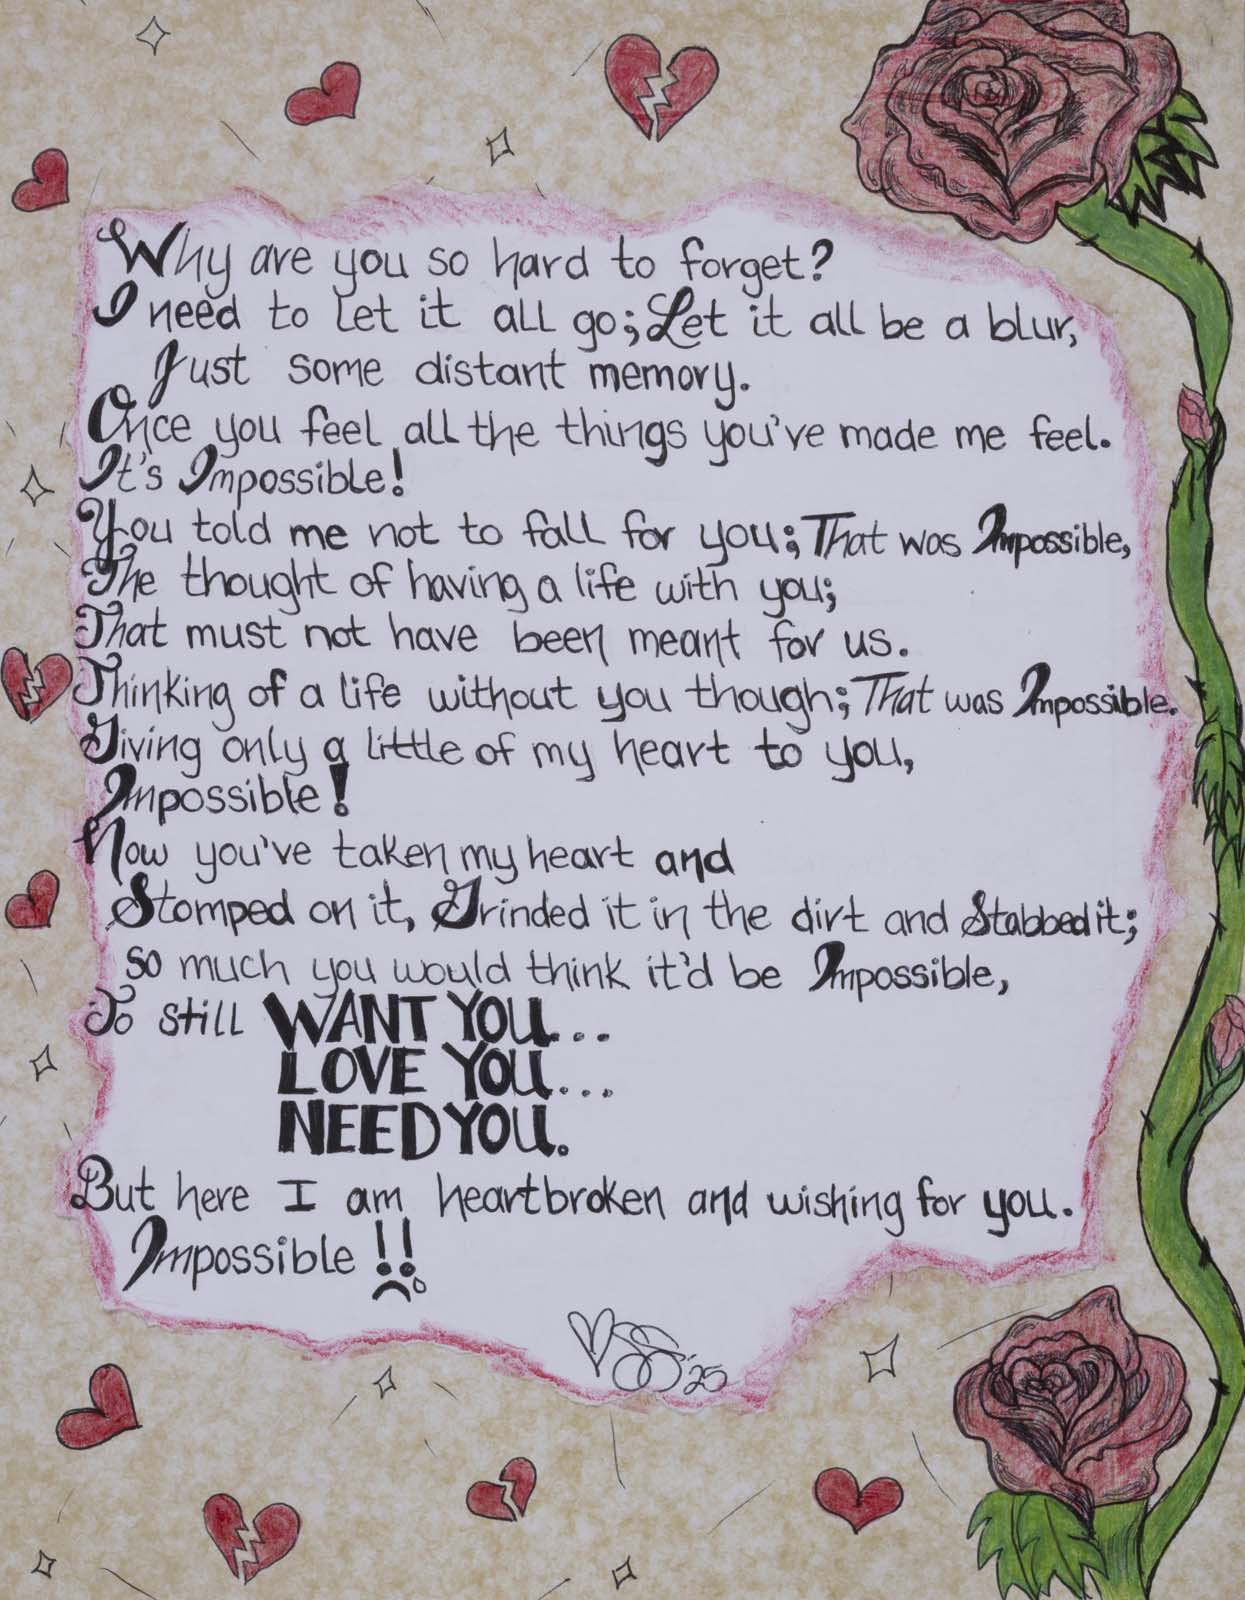 Why are you so hard to forget?
I need to let it all go; Let it all be a blur,
Just some distant memory.
Once you feel all the things you've made me feel.
It's Impossible!
You told me not to fall for you; That was Impossible,
The thought of having a life with you;
That must not have been meant for us.
Thinking of a life without you though; That was Impossible.
Giving only a little of my heart to you,
Impossible!
Now you've taken my heart and
Stomped on it, Grinded it in the dirt and Stabbed it;
so much you would think it'd be Impossible,
To still WANT YOU...
LOVE YOU...
NEED YOU.
But here I am heartbroken and wishing for you.
Impossible!!
'25